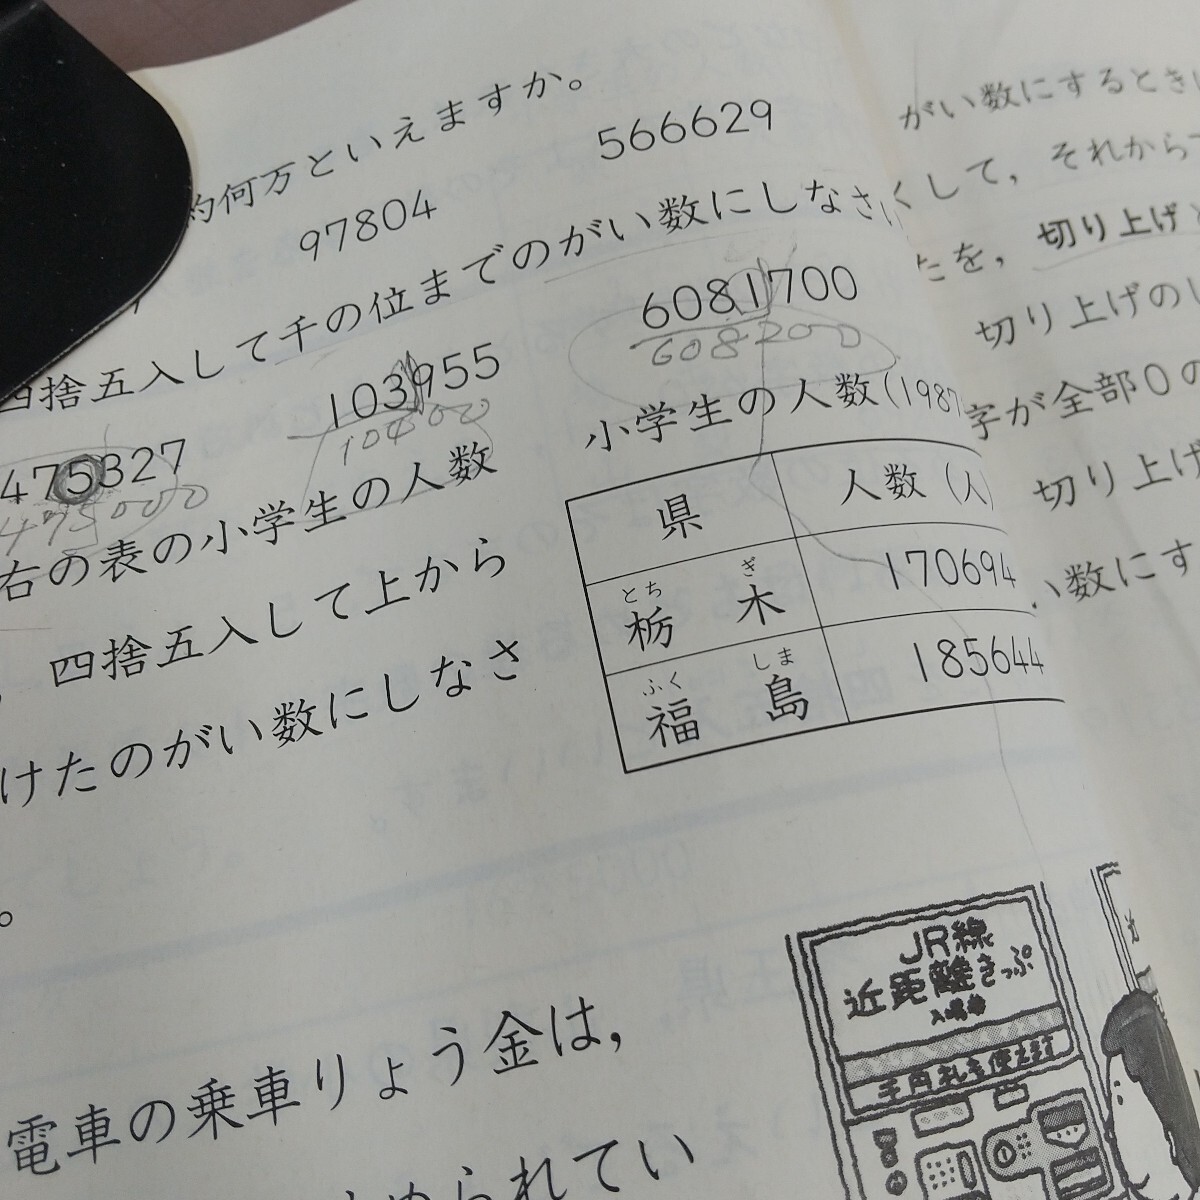 約何万といえますか。
97804
566629
四捨五入して千の位までのがい数にしなさい
475327
475000
103955
6081700
608200
右の表の小学生の人数
四捨五入して上から
けたのがい数にしなさ
。
小学生の人数(1987
県 人数(人)
とち ぎ
栃木 170694
ふく しま
福島 185644
電車の乗車りょう金は,
られてい
JR線
近距離きっぷ
がい数にするとき
くして, それから
たを, 切り上げ
切り上げのし
字が全部0の
切り上げ
い数にす